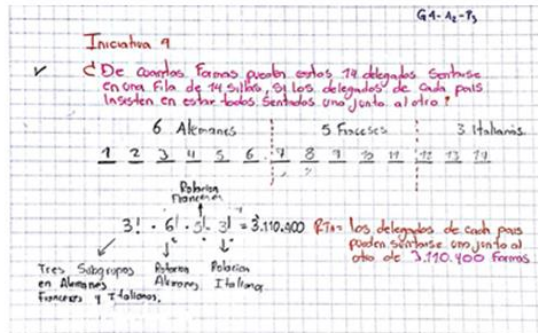 G4-A2-P3
Iniciativa 9
¿De cuantas Formas pueden estos 14 delegados sentarse
en una Fila de 14 sillas, si los delegados de cada pais
insisten en estar todos sentados uno junto al otro?
6 Alemanes 5 Franceses 3 Italianos
1 2 3 4 5 6 7 8 9 10 11 12 13 14
Rotacion
Franceses
3! · 6! · 5! · 3! = 3.110.400 RTA= los delegados de cada pais
pueden sentarse uno junto al
otro de 3.110.400 Formas
Tres Subgrupos Rotacion Rotacion
en Alemanes Alemanes Italiana
Franceses y Italianos.